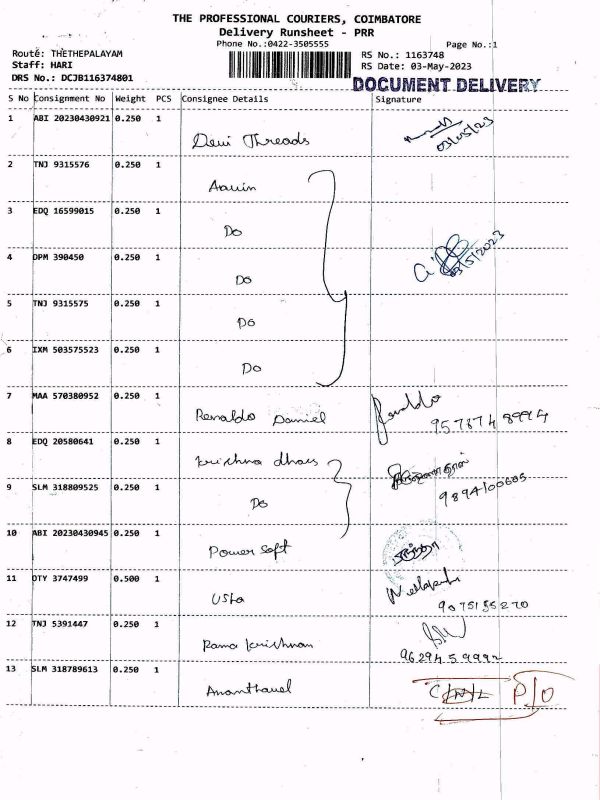 THE PROFESSIONAL COURIERS, COIMBATORE
Delivery Runsheet - PRR
Phone No.:0422-3505555
Page No.:1
Route: THETHEPALAYAM
Staff: HARI
DRS No.: DCJB116374801
RS No.: 1163748
RS Date: 03-May-2023
DOCUMENT DELIVERY
S No Consignment No Weight PCS Consignee Details Signature
1 ABI 20230430921 0.250 1 Devi Threads 03/05/23
2 TNJ 9315576 0.250 1 Aavin
3 EDQ 16599015 0.250 1 Do
4 DPM 390450 0.250 1 Do 03/5/2023
5 TNJ 9315575 0.250 1 Do
6 IXM 503575523 0.250 1 Do
7 MAA 570380952 0.250 1 Renaldo Daniel Renaldo
8 EDQ 20580641 0.250 1 krishna dhass
9 SLM 318809525 0.250 1 Do
10 ABI 20230430945 0.250 1 Power Soft
11 OTY 3747499 0.500 1 Usha
12 TNJ 5391447 0.250 1 Rama krishnan
13 SLM 318789613 0.250 1 Ananthavel P/O